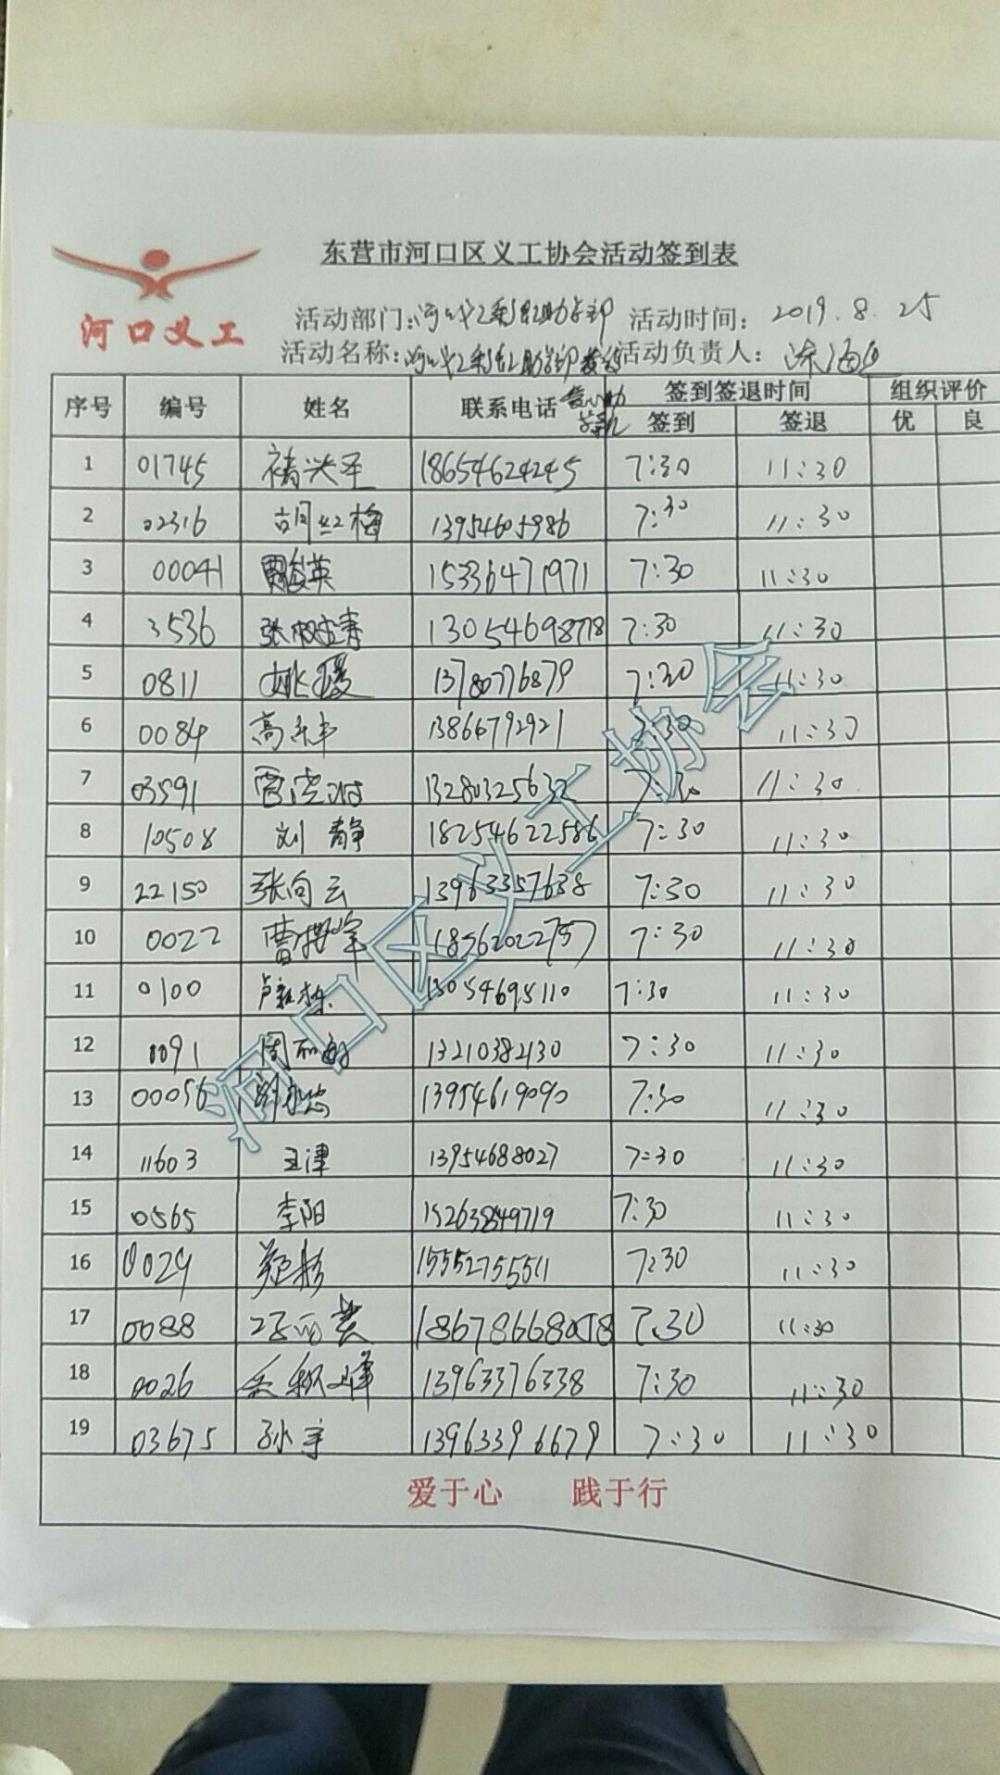 东营市河口区义工协会活动签到表
河口义工
活动部门: 活动时间: 2019.8.25
活动名称: 活动负责人:
序号 编号 姓名 联系电话 签到签退时间 组织评价
签到 签退 优 良
1 01745 褚兴军 18654624245 7:30 11:30
2 02316 胡红梅 13954605986 7:30 11:30
3 00041 15336471971 7:30 11:30
4 3536 张树青 13054698778 7:30 11:30
5 0811 姚媛 13780776879 7:30 11:30
6 0084 13866792921 7:30 11:30
7 03591 13280325632 7:30 11:30
8 10508 刘静 18254622586 7:30 11:30
9 22150 张向云 13963357638 7:30 11:30
10 0022 18562022757 7:30 11:30
11 0100 13054695110 7:30 11:30
12 0091 13210382130 7:30 11:30
13 00056 13954619090 7:30 11:30
14 11603 王津 13954688027 7:30 11:30
15 0565 李阳 15263849719 7:30 11:30
16 0029 15552755511 7:30 11:30
17 0088 7:30 11:30
18 0026 13963376338 7:30 11:30
19 03675 孙宇 13963396679 7:30 11:30
爱于心 践于行
河口区义工协会